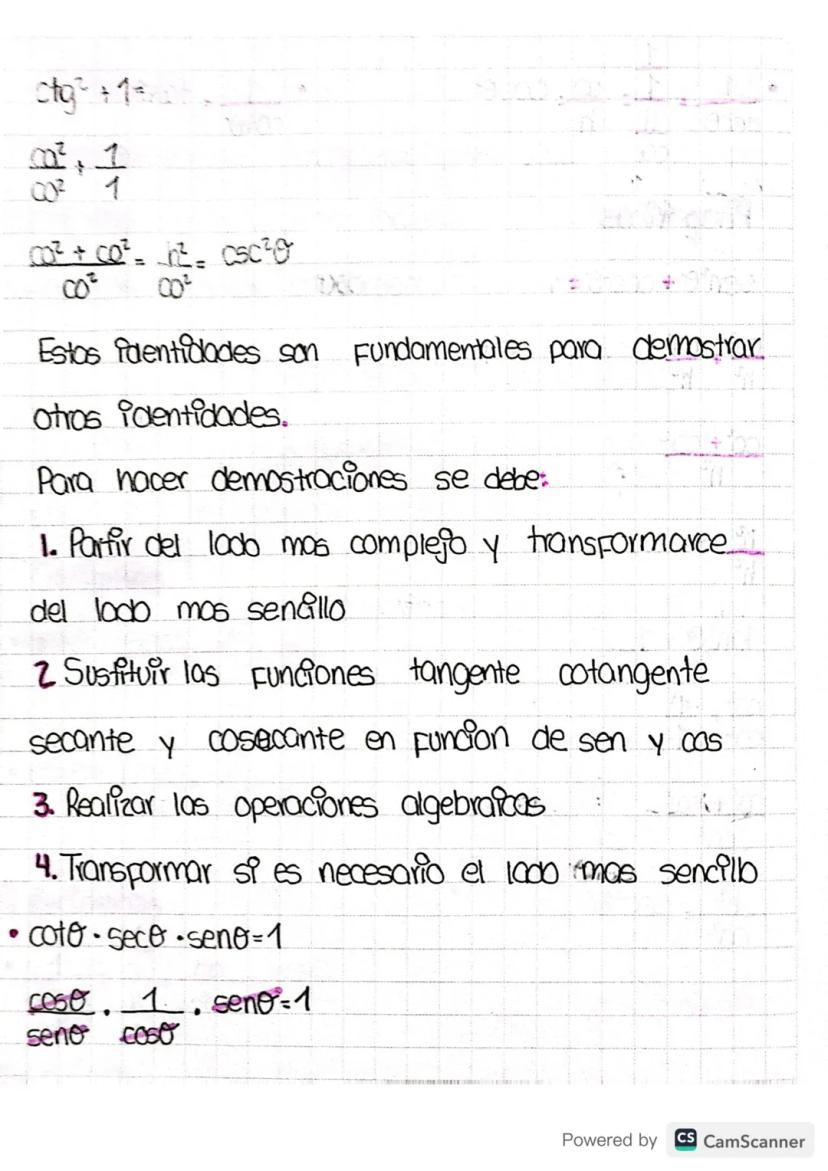 ctg² + 1=
co²/co² + 1/1
co² + co²/co² = h²/co² = csc²θ
Estas identidades son fundamentales para demostrar
otras identidades.
Para hacer demostraciones se debe:
1. Partir del lado mas complejo y transformarce
del lado mas sencillo
2 Sustituir las funciones tangente cotangente
secante y cosecante en funcion de sen y cos
3. Realizar las operaciones algebraicas
4. Transformar si es necesario el lado mas sencillo
• cotθ · secθ · senθ=1
cosθ/senθ · 1/cosθ · senθ=1
Powered by CS CamScanner